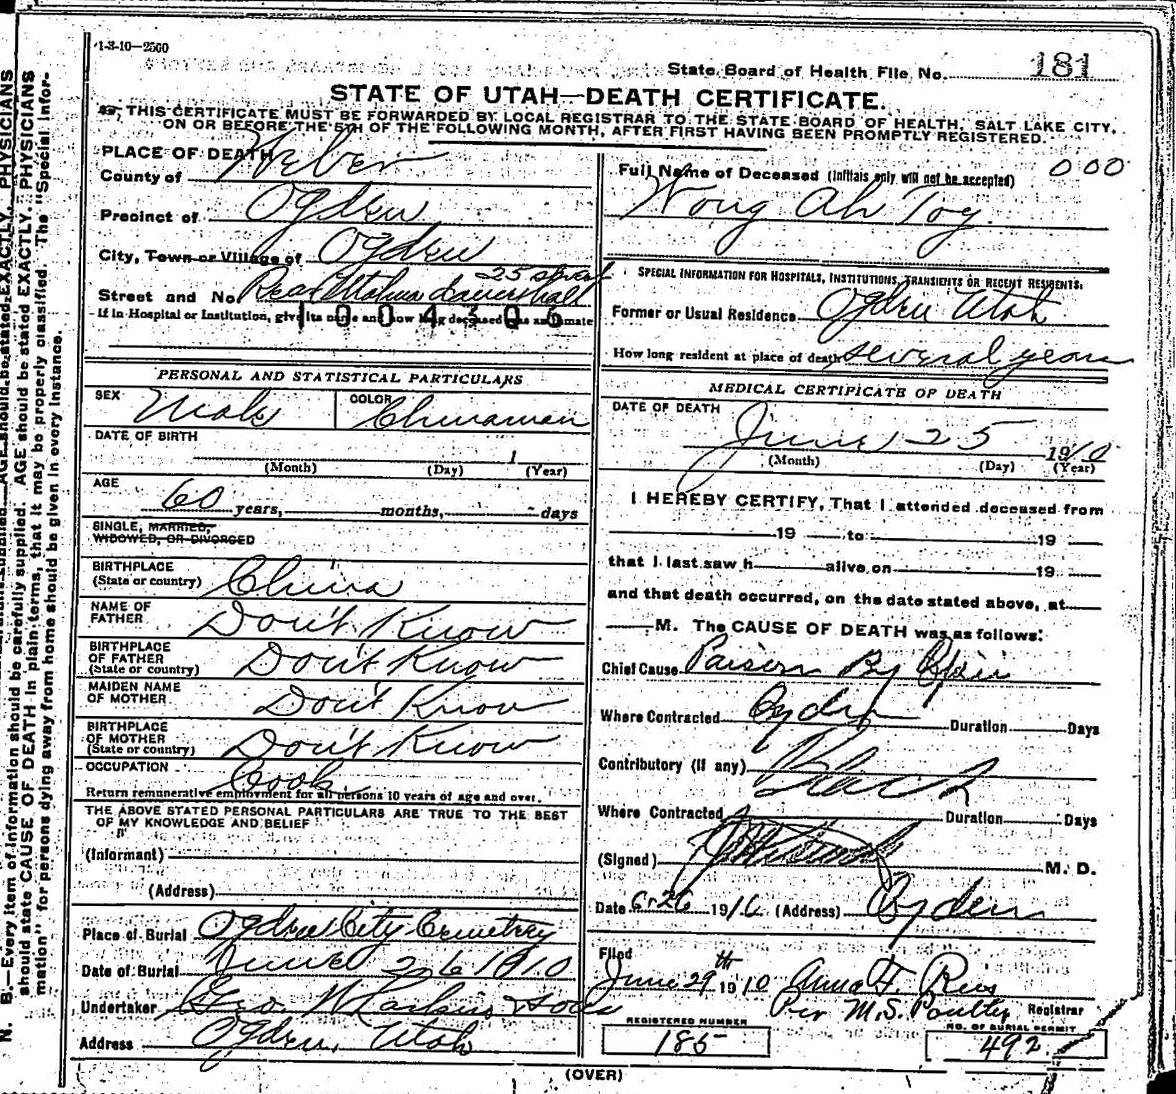 1-3-10-2500
State Board of Health File No. 181
STATE OF UTAH—DEATH CERTIFICATE.
THIS CERTIFICATE MUST BE FORWARDED BY LOCAL REGISTRAR TO THE STATE BOARD OF HEALTH, SALT LAKE CITY,
ON OR BEFORE THE 5TH OF THE FOLLOWING MONTH, AFTER FIRST HAVING BEEN PROMPTLY REGISTERED.
PLACE OF DEATH
County of Weber
Precinct of Ogden
City, Town or Village of Ogden
25 street
Street and No. Rear
If in Hospital or Institution, give its name and how long deceased was an inmate
1004306
PERSONAL AND STATISTICAL PARTICULARS
SEX Male COLOR Chinaman
DATE OF BIRTH
(Month) (Day) 1 (Year)
AGE
60 years, months, days
SINGLE, MARRIED,
WIDOWED, OR DIVORCED
BIRTHPLACE
(State or country) China
NAME OF
FATHER Don't Know
BIRTHPLACE
OF FATHER
(State or country) Don't Know
MAIDEN NAME
OF MOTHER Don't Know
BIRTHPLACE
OF MOTHER
(State or country) Don't Know
OCCUPATION Cook
Return remunerative employment for all persons 10 years of age and over.
THE ABOVE STATED PERSONAL PARTICULARS ARE TRUE TO THE BEST
OF MY KNOWLEDGE AND BELIEF
(Informant)
(Address)
Place of Burial Ogden City Cemetery
Date of Burial June 26 1910
Undertaker Geo. W Larkin & Sons
Address Ogden, Utah
Full Name of Deceased (Initials only will not be accepted) 000
Wong Ah Toy
SPECIAL INFORMATION FOR HOSPITALS, INSTITUTIONS, TRANSIENTS OR RECENT RESIDENTS.
Former or Usual Residence Ogden Utah
How long resident at place of death several years
MEDICAL CERTIFICATE OF DEATH
DATE OF DEATH
June 25 1910
(Month) (Day) (Year)
I HEREBY CERTIFY, That I attended deceased from
19 to 19
that I last saw h alive on 19
and that death occurred, on the date stated above, at
M. The CAUSE OF DEATH was as follows:
Chief Cause Poison By
Where Contracted Ogden Duration Days
Contributory (if any)
Where Contracted Duration Days
(Signed) M. D.
Date 6-26 1910 (Address) Ogden
Filed
June 29th 1910 Anna F. Reis
Per M.S. Poulter Registrar
REGISTERED NUMBER
185
NO. OF BURIAL PERMIT
492
(OVER)
N. B.—Every item of information should be carefully supplied. AGE should be stated EXACTLY. PHYSICIANS
should state CAUSE OF DEATH in plain terms, that it may be properly classified. The "Special Infor-
mation" for persons dying away from home should be given in every instance.